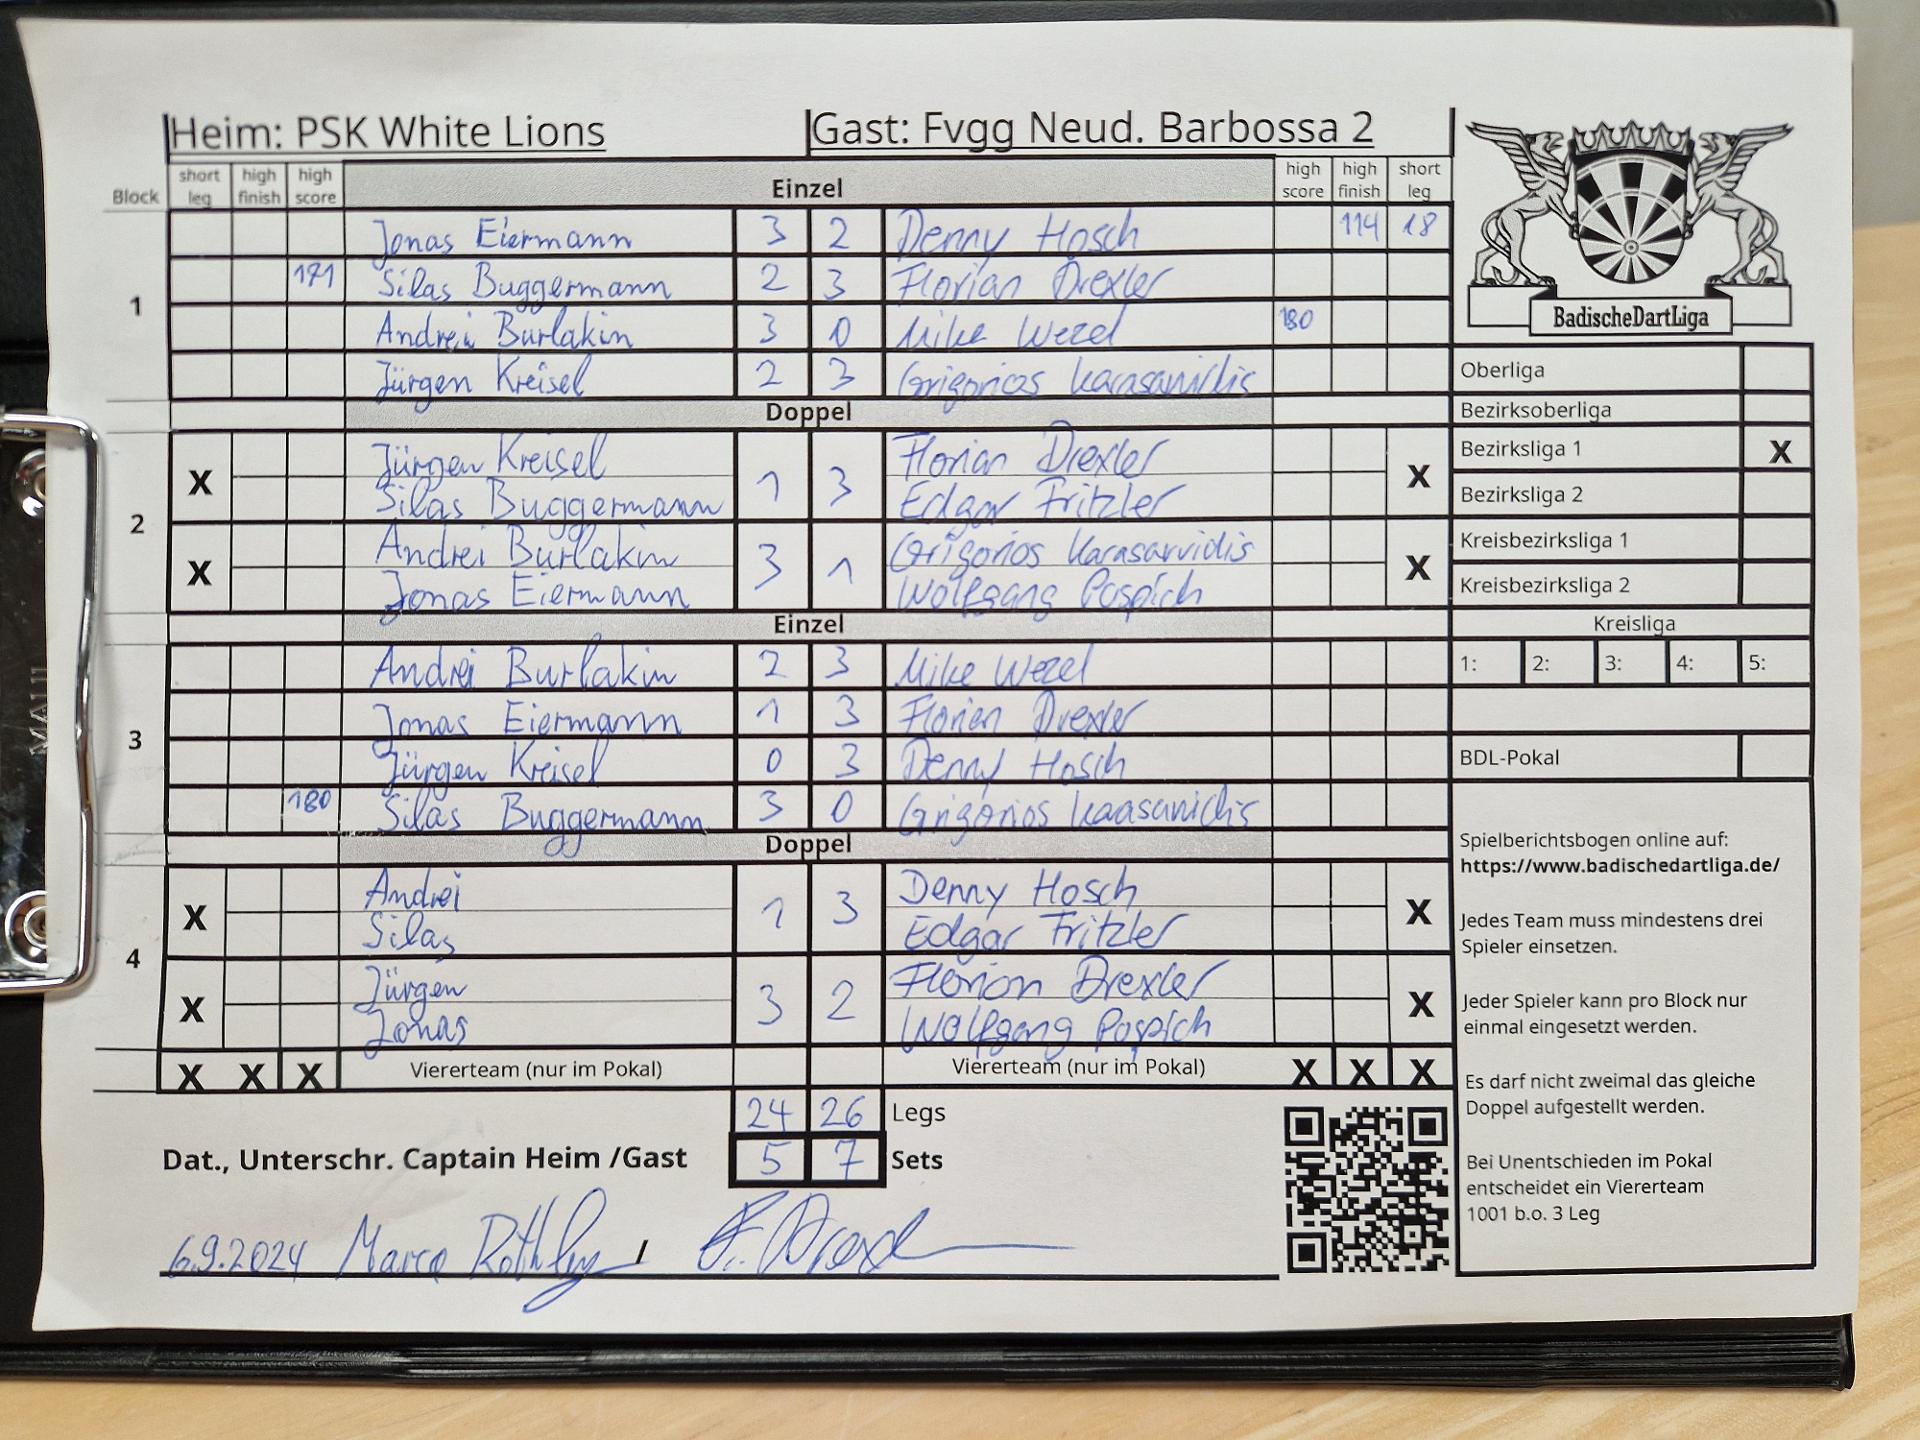 Heim: PSK White Lions Gast: Fvgg Neud. Barbossa 2
Block short leg high finish high score Einzel high score high finish short leg
1
Jonas Eiermann 3 2 Denny Hosch 114 18
171 Silas Buggermann 2 3 Florian Drexler
Andrei Burlakin 3 0 Mike Wezel 180
Jürgen Kreisel 2 3 Grigorios Karasavidis
Doppel
2
X Jürgen Kreisel 1 3 Florian Drexler X
Silas Buggermann Edgar Fritzler
X Andrei Burlakin 3 1 Grigorios Karasarvidis X
Jonas Eiermann Wolfgang Pospich
Einzel
3
Andrei Burlakin 2 3 Mike Wezel
Jonas Eiermann 1 3 Florian Drexler
Jürgen Kreisel 0 3 Denny Hosch
180 Silas Buggermann 3 0 Grigorios
Doppel
4
X Andrei 1 3 Denny Hosch X
Silas Edgar Fritzler
X Jürgen 3 2 Florian Drexler X
Jonas Wolfgang Pospich
X X X Viererteam (nur im Pokal) Viererteam (nur im Pokal) X X X
24 26 Legs
Dat., Unterschr. Captain Heim /Gast 5 7 Sets
6.9.2024 Marco /
BadischeDartLiga
Oberliga
Bezirksoberliga
Bezirksliga 1 X
Bezirksliga 2
Kreisbezirksliga 1
Kreisbezirksliga 2
Kreisliga
1: 2: 3: 4: 5:
BDL-Pokal
Spielberichtsbogen online auf:
https://www.badischedartliga.de/
Jedes Team muss mindestens drei
Spieler einsetzen.
Jeder Spieler kann pro Block nur
einmal eingesetzt werden.
Es darf nicht zweimal das gleiche
Doppel aufgestellt werden.
Bei Unentschieden im Pokal
entscheidet ein Viererteam
1001 b.o. 3 Leg
MAUL